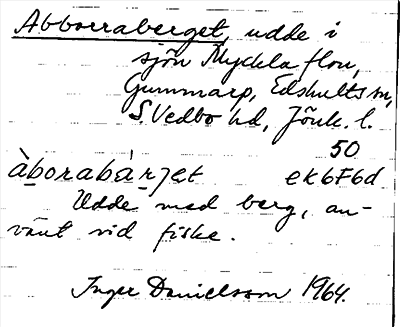 Abborraberget, udde i
sjön Myckla flon,
Gummarp, Edshults sn,
S. Vedbo hd, Jönk. l.
50
àborabárjet ek6F6d
Udde med berg, an-
vänt vid fiske.
Inger Danielsson 1964.